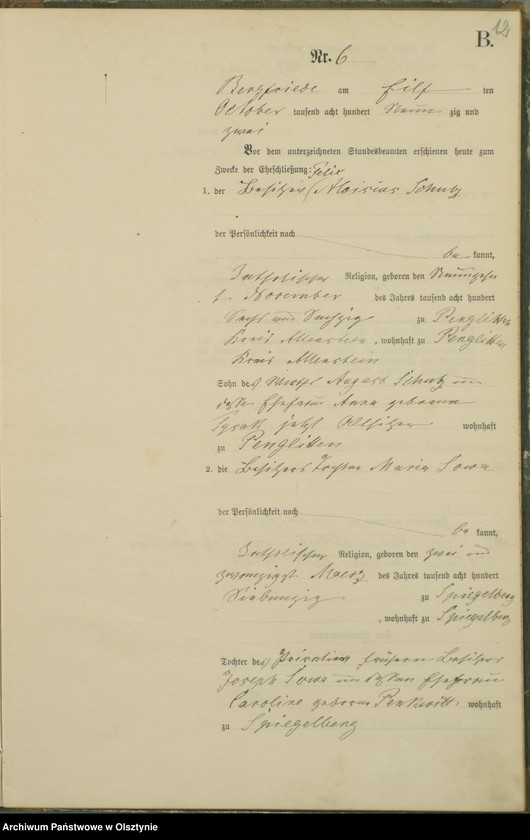 12
B.
Nr. 6
Bergfriede am Eilf ten
October tausend acht hundert Neun zig und
zwei
Vor dem unterzeichneten Standesbeamten erschienen heute zum
Zwecke der Eheschließung:
1. der Besitzer Aloisius Schulz
der Persönlichkeit nach
be kannt,
katholischer Religion, geboren den Neunzehn
t. November des Jahres tausend acht hundert
Sechs und Sechzig zu Penglitten
Kreis Allenstein, wohnhaft zu Penglitten
Kreis Allenstein
Sohn des August Schulz und
Ehefrau Anna geborene
jetzt Altsitzer wohnhaft
zu Penglitten
2. die Besitzers Tochter Maria Sowa
der Persönlichkeit nach
be kannt,
katholischer Religion, geboren den zwei und
zwanzigst. Maerz des Jahres tausend acht hundert
Siebenzig zu Spiegelberg
, wohnhaft zu Spiegelberg
Tochter des früheren Besitzer
Joseph Sowa und dessen Ehefrau
Caroline geborene wohnhaft
zu Spiegelberg
Archiwum Państwowe w Olsztynie